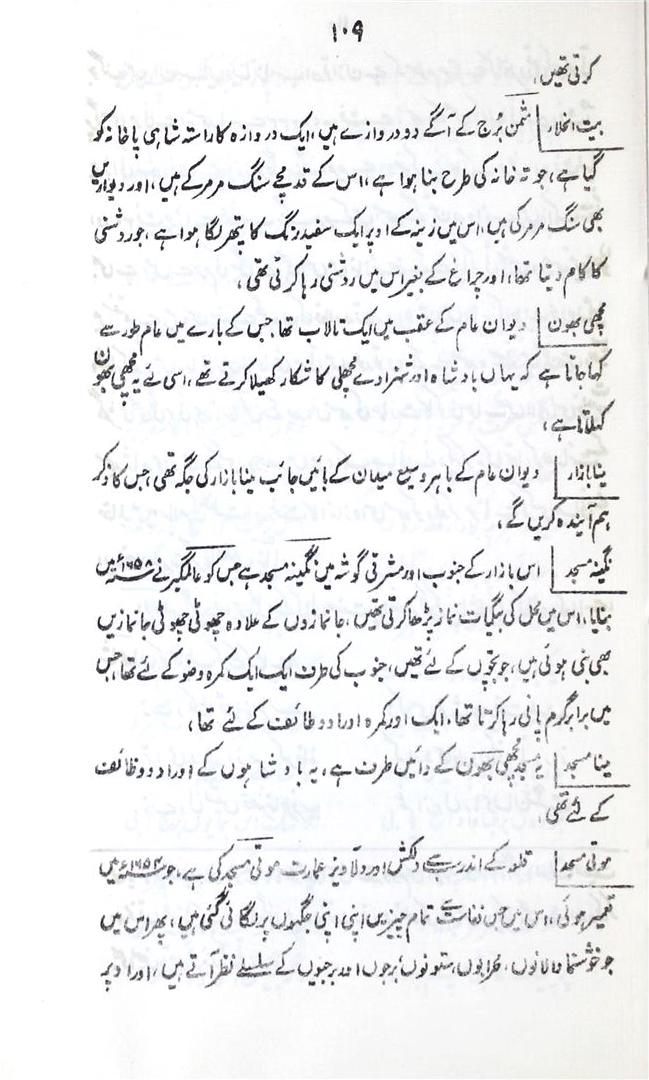 ۱۰۹
کرتی تھیں،
بیت الخلاء ثمن بُرج کے آگے دو دروازے ہیں، ایک دروازہ کا راستہ شاہی پاخانہ کو
گیا ہے، جو تہ خانہ کی طرح بنا ہوا ہے، اس کے قدمچے سنگ مرمر کے ہیں، اور دیواریں
بھی سنگ مرمر کی ہیں، اس میں زینہ کے اوپر ایک سفید رنگ کا پتھر لگا ہوا ہے، جو روشنی
کا کام دیتا تھا، اور چراغ کے بغیر اس میں روشنی رہا کرتی تھی،
مچھی بھون دیوان عام کے عقب میں ایک تالاب تھا جس کے بارے میں عام طور سے
کہا جاتا ہے کہ یہاں بادشاہ اور شہزادے مچھلی کا شکار کھیلا کرتے تھے، اسی لئے یہ مچھی بھون
کہلاتا ہے،
مینا بازار دیوان عام کے باہر وسیع میدان کے بائیں جانب مینا بازار کی جگہ تھی، جس کا ذکر
ہم آیندہ کریں گے،
نگینہ مسجد اس بازار کے جنوب اور مشرقی گوشہ میں نگینہ مسجد ہے جس کو عالمگیر نے ۱۶۵۸ء میں
بنایا، اس میں محل کی بیگمات نماز پڑھا کرتی تھیں، جانمازوں کے علاوہ چھوٹی چھوٹی جانمازیں
بھی بنی ہوئی ہیں، جو بچوں کے لئے تھیں، جنوب کی طرف ایک ایک کمرہ وضو کے لئے تھا، جس
میں برابر گرم پانی رہا کرتا تھا، ایک اور کمرہ اوراد و وظائف کے لئے تھا،
مینا مسجد یہ مسجد مچھی بھون کے دائیں طرف ہے، یہ بادشاہوں کے اوراد و وظائف
کے لئے تھی،
موتی مسجد قلعہ کے اندر سب سے دلکش اور دلآویز عمارت موتی مسجد کی ہے، جو ۱۶۵۴ء میں
تعمیر ہوئی، اس میں جس نفاست سے تمام چیزیں اپنی اپنی جگہوں پر لگائی گئی ہیں، پھر اس میں
جو خوشنما دالانوں، محرابوں، ستونوں، بُرجوں اور برجیوں کے سلسلے نظر آتے ہیں، اور اوپر